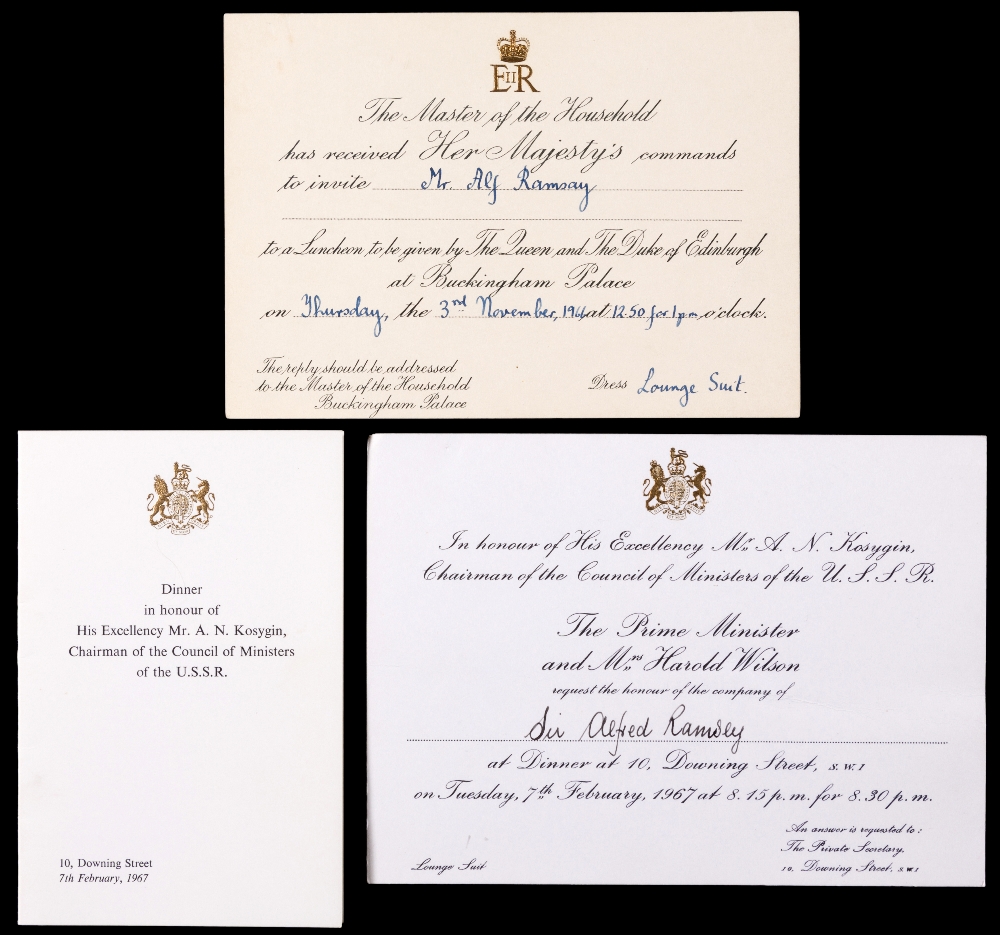 E II R
The Master of the Household
has received Her Majesty's commands
to invite Mr. Alf Ramsay
to a Luncheon to be given by The Queen and The Duke of Edinburgh
at Buckingham Palace
on Thursday, the 3rd November, 1966 at 12.50 for 1 pm o'clock.
The reply should be addressed
to the Master of the Household
Buckingham Palace
Dress Lounge Suit.
Dinner
in honour of
His Excellency Mr. A. N. Kosygin,
Chairman of the Council of Ministers
of the U.S.S.R.
10, Downing Street
7th February, 1967
In honour of His Excellency Mr. A. N. Kosygin,
Chairman of the Council of Ministers of the U. S. S. R.
The Prime Minister
and Mrs Harold Wilson
request the honour of the company of
Sir Alfred Ramsey
at Dinner at 10, Downing Street, S.W.1
on Tuesday, 7th February, 1967 at 8.15 p.m. for 8.30 p.m.
An answer is requested to:
The Private Secretary.
10, Downing Street, S.W.1
Lounge Suit